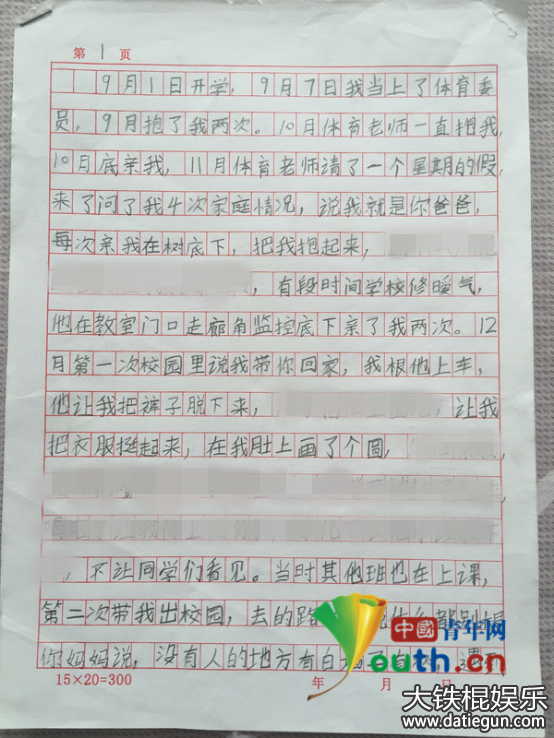 第 1 页
9月1日开学，9月7日我当上了体育委
员，9月抱了我两次。10月体育老师一直抱我，
10月底亲我，11月体育老师请了一个星期的假，
来了问了我4次家庭情况，说我就是你爸爸，
每次亲我在树底下，把我抱起来，
，有段时间学校修暖气，
他在教室门口走廊角监控底下亲了我两次。12
月第一次校园里说我带你回家，我根他上车，
他让我把裤子脱下来，，让我
把衣服挺起来，在我肚上画了个圆，
，不让同学们看见。当时其他班也在上课，
第二次带我出校园，去的路
你妈妈说，没有人的地方有白
15×20=300 年 月 日
中國青年网
Youth.cn
大铁棍娱乐
www.datiegun.com